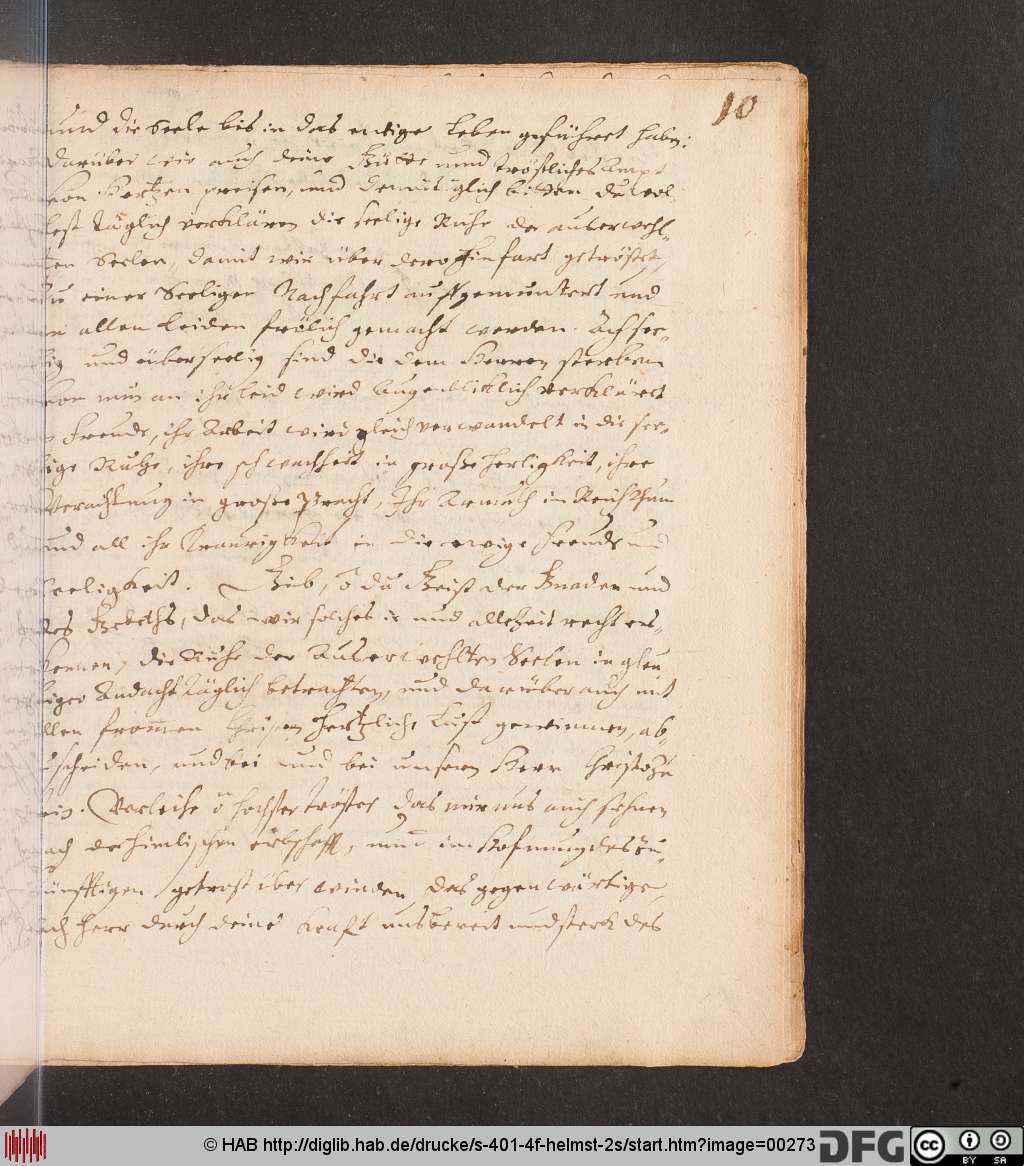 10
und die Seele bis in das ewige Leben geführet haben:
darüber wir auch deine Gütte unnd tröstliches Ampt
von Hertzen preisen, und demütiglich bitten du wol
lest täglich verklären die seelige Ruhe der auserwehl-
ten Seelen, damit wir über dero Hinfart getröstet,
zu einer Seeligen Nachfahrt auffgemuntert und
in allen Leiden frölich gemacht werden. Ach see-
lig und überseelig sind die dem Herren sterben
von nun an ihr leid wird Augenblicklich verkläret
in Freude, ihr Arbeit wird gleich verwandelt in die see-
lige Ruhe, ihre schwachheit in große herligkeit, ihre
Verachtung in große Pracht, Ihr Armuth in Reichthum
und all ihr Traurigkeit in die ewige Freude und
Seeligkeit. Gib, o du Geist der Gnaden und
des Gebeths, das wir solches ie und allezeit recht er-
kennen, die Ruhe der Auserwehlten Seelen in gleu
biger Andacht täglich betrachten, und darüber auch mit
allen frommen Christen Hertzliche Lust gewinnen, ab-
zuscheiden, und bei und bei unserm Herrn Christo zu
sein. Verleihe o höchster Tröster das wir uns auch sehnen
nach der himlischen erbschafft, und in Hofnung des zu-
künfftigen getrost überwinden das gegenwärtige,
ach Herr durch deine Krafft uns bereit und sterk des
© HAB http://diglib.hab.de/drucke/s-401-4f-helmst-2s/start.htm?image=00273
DFG
cc BY SA